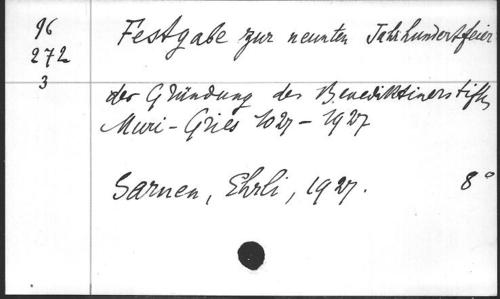 96
272
3
Festgabe zur neunten Jahrhundertfeier
der Gründung des Benediktinerstifts
Muri-Gries 1027-1927
Sarnen, Ehrli, 1927. 8°